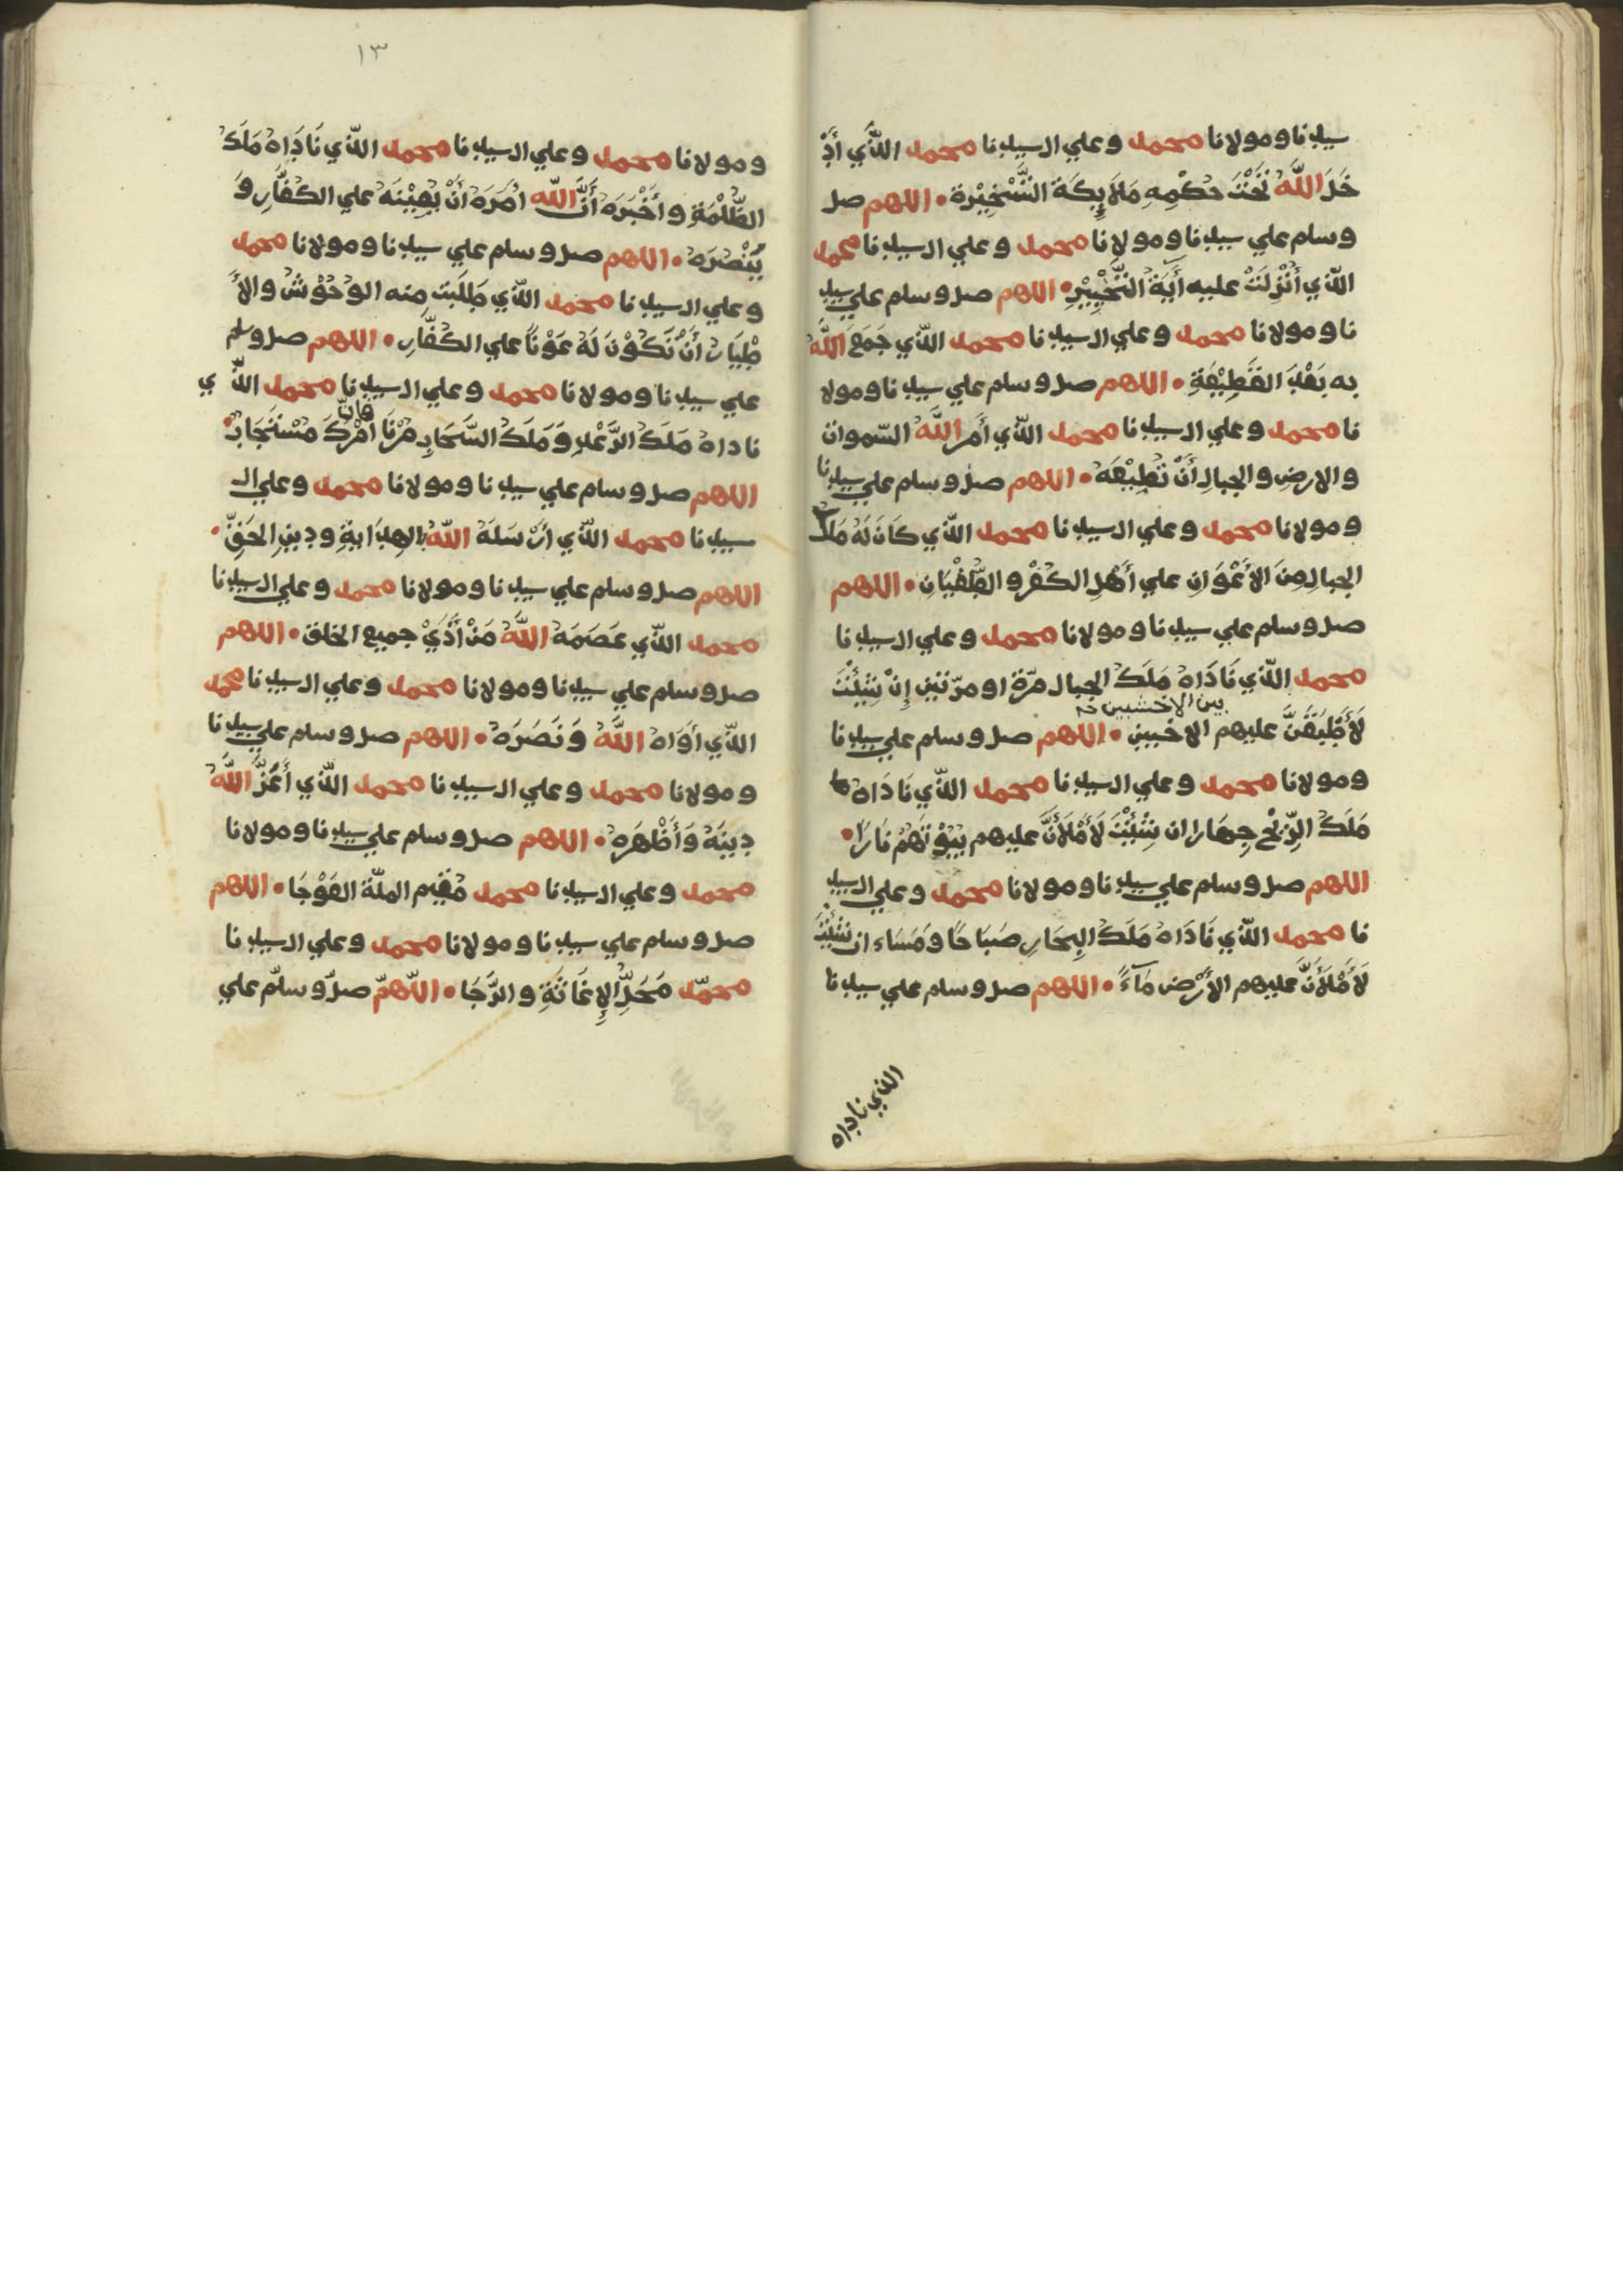 سيدنا ومولانا محمد وعلي ال سيدنا محمد الّذي أَدْ
خَلَ اللَّهُ تَحْتَ حُكْمِهِ مَلاَيِكَةَ التَّسْخِيْرة • اللهم صل
وسلم علي سيدنا ومولانا محمد وعلي ال سيدنا محمد
الّذي أُنْزِلَتْ عليه أَيَةُ التَّخْيِيْرِ • اللهم صل وسلم علي سيد
نا ومولانا محمد وعلي ال سيدنا محمد الّذي جَمَعَ اللَّهُ
به بَعْدَ القَطِيْعَةِ • اللهم صل وسلم علي سيدنا ومولا
نا محمد وعلي ال سيدنا محمد الّذي أَمَر اللَّهُ السّموات
والارضِ والجبالِ أَنْ تُطِيْعَهُ • اللهم صل وسلم علي سيدنا
ومولانا محمد وعلي ال سيدنا محمد الّذي كَانَ لَهُ مَلَكُ
الجبالِ مِنَ الأَعْوَانِ علي أَهْلِ الكُفْرِ والطُّغْيَانِ • اللهم
صل وسلم علي سيدنا ومولانا محمد وعلي ال سيدنا
محمد الّذي نَادَاهُ مَلَكُ الجبال مرّة او مرّتين إِنْ شِئْتَ
بين الاخشبين
لَأُطْبِقَنَّ عليهم الاخبين • اللهم صل وسلم علي سيدنا
ومولانا محمد وعلي ال سيدنا محمد الّذي نَادَاهُ
مَلَكُ الرِّيْحِ جِهَارا ان شِئْتَ لَأَمْلَأَنَّ عليهم بُيُوْتَهُمْ نَارًا •
اللهم صل وسلم علي سيدنا ومولانا محمد وعلي ال سيد
نا محمد الّذي نَادَاهُ مَلَكُ البِحَارِ صَبَاحًا وَمَسَاء ان شِئْتَ
لَأَمْلَأَنَّ عليهم الأَرْضَ مَآءً • اللهم صل وسلم علي سيدنا
الذي ناداه
١٣
ومولانا محمد وعلي ال سيدنا محمد الّذي نَادَاهُ مَلَكُ
الظُّلْمَةِ وأَخْبَرَهُ أَنَّ اللَّه أَمَرَهُ أَنْ يُعِيْنَهُ علي الكُفَّارِ وَ
يَنْصُرَهُ • اللهم صل وسلم علي سيدنا ومولانا محمد
وعلي ال سيدنا محمد الّذي طَلَبت منه الوُحُوْشُ والأَ
ظْبِيَات أَنْ تَكُوْنَ لَهُ عَوْنًا علي الكُفَّارِ • اللهم صل وسلم
علي سيدنا ومولانا محمد وعلي ال سيدنا محمد الّذي
فانّ
ناداهُ مَلَكُ الرَّعْدِ وَمَلَكُ السَّحَابِ مُرْنَا أَمْرُكَ مُسْتَجَابٌ •
اللهم صل وسلم علي سيدنا ومولانا محمد وعلي ال
سيدنا محمد الّذي أرْسَلَهُ اللَّهُ بالهِدَايةِ ودِينِ الحَقِّ •
اللهم صل وسلم علي سيدنا ومولانا محمد وعلي ال سيدنا
محمد الّذي عَصَمَهُ اللَّهُ مَنْ أَذَيْ جميع الخلق • اللهم
صل وسلم علي سيدنا ومولانا محمد وعلي ال سيدنا محمد
الّذي أَوَاهُ اللَّهُ وَنَصَرَهُ • اللهم صل وسلم علي سيدنا
ومولانا محمد وعلي ال سيدنا محمد الّذي أَعَزَّ اللَّهُ
دِينَهُ وَأَظْهَرَهُ • اللهم صل وسلم علي سيدنا ومولانا
محمد وعلي ال سيدنا محمد مُقيم الملّة العَوْجَا • اللهم
صل وسلم علي سيدنا ومولانا محمد وعلي ال سيدنا
محمّد مَحَلِّ الإِغَاثَةِ والرَّجَا • اللّهمّ صلّ وسلّم علي